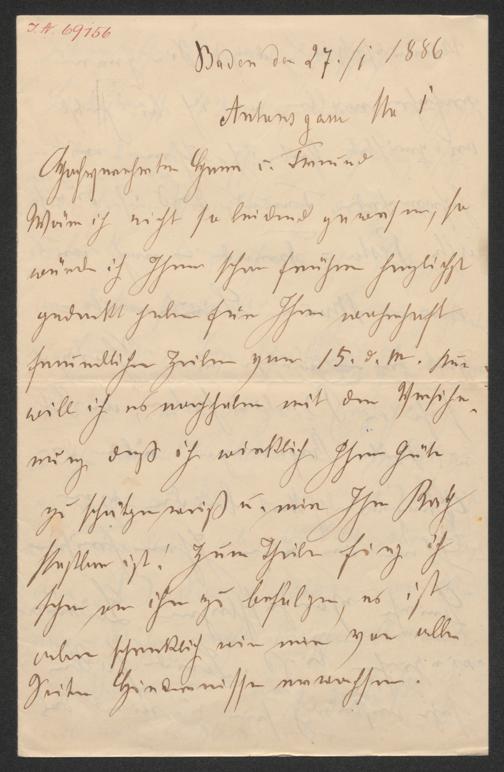 I.N. 69156
Baden den 27./1 1886
Antonsgasse No 1
Hochverehrter Herr u. Freund
Wäre ich nicht so leidend gewesen, so
würde ich Ihnen schon früher herzlichst
gedankt haben für Ihre wahrhaft
freundlichen Zeilen vom 15. d. M. Nun
will ich es nachholen mit der Versiche-
rung, daß ich wirklich Ihre Güte
zu schätzen weiß u. mir Ihr Rath
kostbar ist! Zum Theile fing ich
schon an ihn zu befolgen, es ist
aber schrecklich wie mir von allen
Seiten Hindernisse erwachsen.